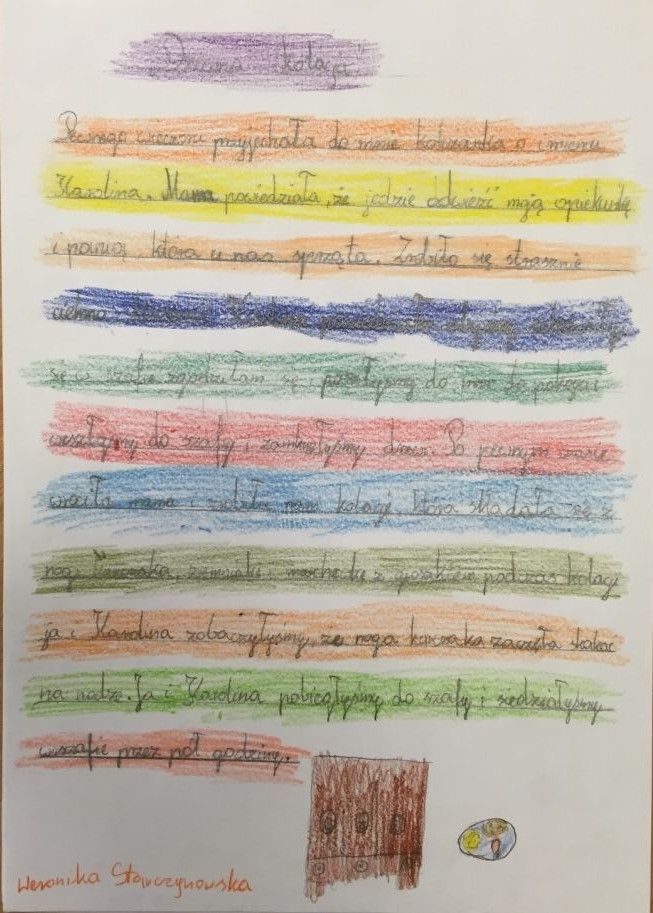 Dziwna kolacja
Pewnego wieczoru przyjechała do mnie koleżanka o imieniu
Karolina. Mama powiedziała, że jedzie odwieźć moją opiekunkę
i panią, która u nas sprząta. Zrobiło się strasznie
ciemno
się w szafie zgodziłam się i poszłyśmy do mnie do pokoju i
weszłyśmy do szafy i zamknęłyśmy drzwi. Po pewnym czasie
wróciła mama i zrobiła nam kolacji, która składała się z
nogi kurczaka, ziemniaki, marchewkę z groszkiem podczas kolacji
ja i Karolina zobaczyłyśmy, że noga kurczaka zaczęła skakać
na nodze. Ja i Karolina pobiegłyśmy do szafy i siedziałyśmy
w szafie przez pół godziny.
Weronika Starczynowska